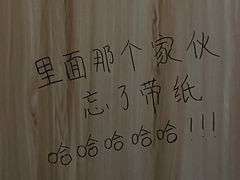 里面那个家伙
忘了带纸
哈哈哈哈哈!!!